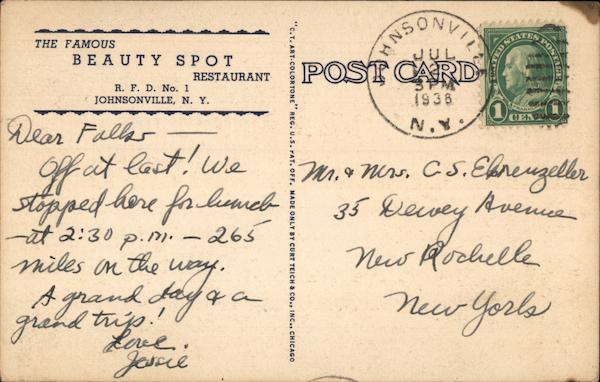 THE FAMOUS
BEAUTY SPOT
RESTAURANT
R. F. D. No. 1
JOHNSONVILLE, N. Y.
Dear Folks —
Off at last! We
stopped here for lunch
-at 2:30 p.m. - 265
miles on the way.
A grand day & a
grand trip!
Love.
"C.T. ART-COLORTONE" REG. U.S. PAT. OFF. MADE ONLY BY CURT TEICH & CO., INC., CHICAGO
POST CARD
JOHNSONVILLE
JUL
3 PM
1936
N.Y.
UNITED STATES POSTAGE
1 CENT 1
Mr. & Mrs. C. S. Ehrenzeller
35 Dewey Avenue
New Rochelle
New York